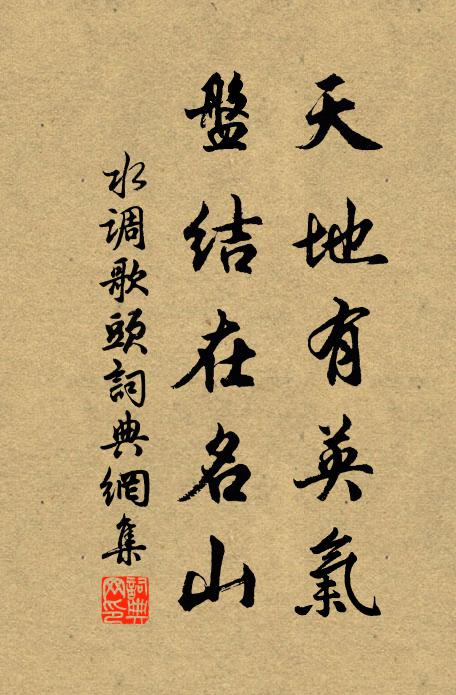 天地有英氣
盤結在名山
水調歌頭詞典網集
詞典
网印